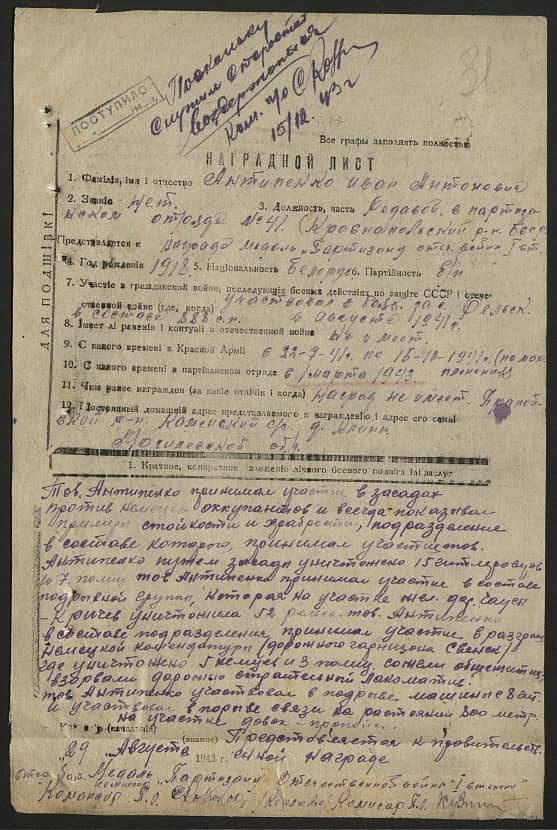 ПОСТУПИЛО
31
15/12 43 г
Все графы заполнять полностью
НАГРАДНОЙ ЛИСТ
1. Фамілія, імя і отчество Антипенко Иван Антонович
2. Звание нет. 3. Должность, часть Рядовой, в партиза-
нском отряде № 41 (Краснопольский р-н БССР
Представляется к награде медаль "Партизану отеч. войны" I ст.
4. Год рождения 1918 5. Національность Белорус 6. Партійность б/п
7. Участіе в гражданской войне, последующіх боевых действіях по защіте СССР і отече-
ственной войне (где, когда) участвовал в
в составе 888 с.п. в августе 1941 г.
8. Імеет лі раненія і контузіі в отечественной войне Не имеет.
9. С какого времені в Красной Арміі с 22-7-41 г. по 15-10-1941 г.
10. С какого времені в партізанском отряде с 1 марта 1943
11. Чем ранее награжден (за какіе отлічія і когда) наград не имеет.
12. Постоянный домашній адрес представляемого к награжденію і адрес его семьі Пропой-
ский р-н Каменский с/с д.
Могилевской обл.
ДЛЯ ПОДШІВКІ
1. Краткое, конкретное ізложеніе лічного боевого подвіга ілі заслуг
Тов. Антипенко принимал участие в засадах
против немецких оккупантов и всегда показывал
примеры стойкости и храбрости, подразделение
в составе которого, принимал участие тов.
Антипенко путем засады уничтожено 15 гитлеровцев
и 7 полиц. тов. Антипенко принимал участие в составе
подрывной группы, которая на участке жел. дор. Чаусы
Кричев уничтожила 52 рельс. тов. Антипенко
в составе подразделения принимал участие в разгроме
немецкой комендатуры (дорожного гарнизона
где уничтожено 5 немцев и 3 полиц. сожгли общежитие,
взорвали дорожно строительной
тов. Антипенко участвовал в подрыве машины
и участвовал в порыве связи на растоянии 800 метр.
на участке довск - пропойск.
Командір (начальнік)
(званіе) Представляется к правительств.
"29" Августа 1943 г. енной награде
Медаль "Партизану Отечественной войны" I степени
Командир П.О. Комисар П.О.